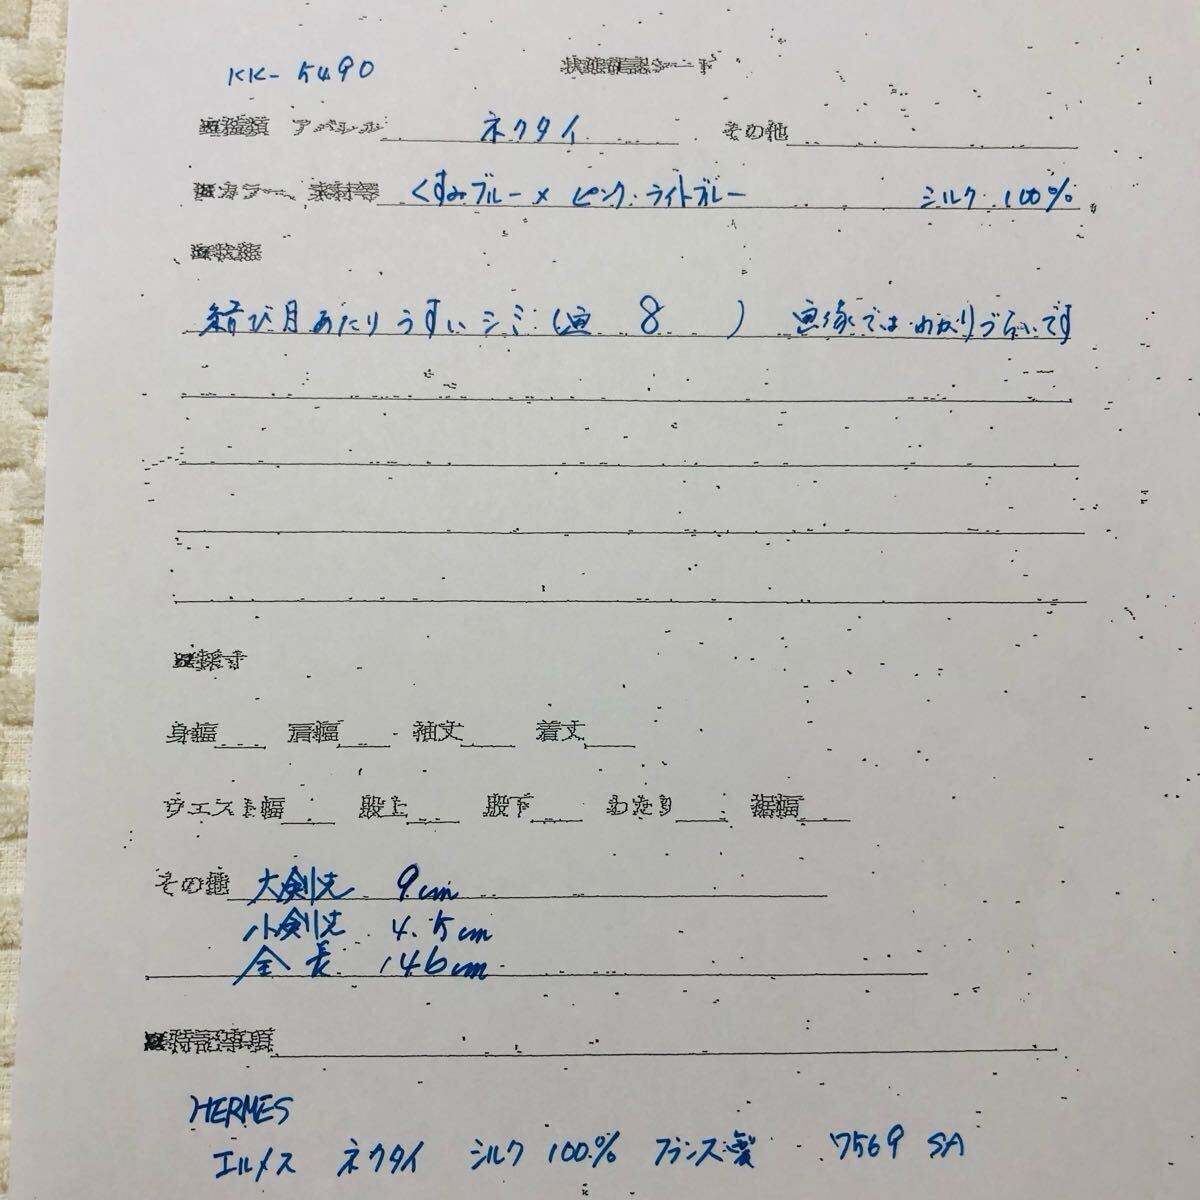 KK-5490 状態確認シート
■種類 アパレル ネクタイ その他
■カラー、素材等 くすみブルー×ピンク・ライトブルー シルク 100%
■状態
結び目あたりうすいシミ(画 8 ) 画像ではわかりづらいです
■採寸
身幅 肩幅 袖丈 着丈
ウエスト幅 股上 股下 わたり 裾幅
その他 大剣先 9cm
小剣先 4.5cm
全長 146cm
■特記事項
HERMES
エルメス ネクタイ シルク 100% フランス製 7569 SA